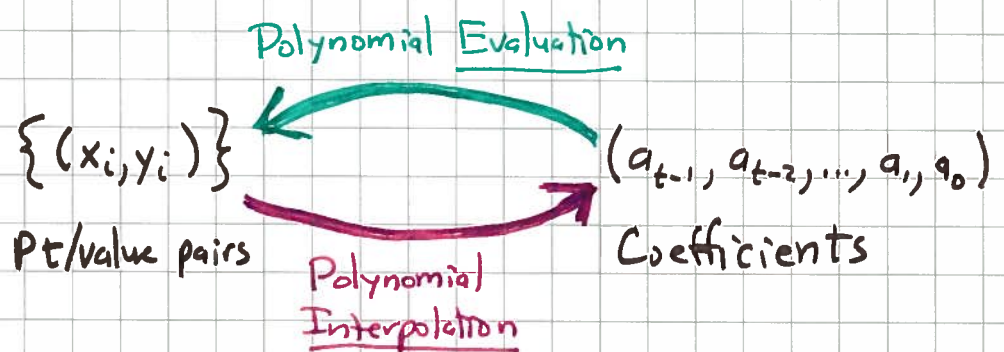 Polynomial Evaluation
{(xᵢ,yᵢ)}
(a_{t-1}, a_{t-2}, ..., a₁, a₀)
Pt/value pairs
Coefficients
Polynomial
Interpolation